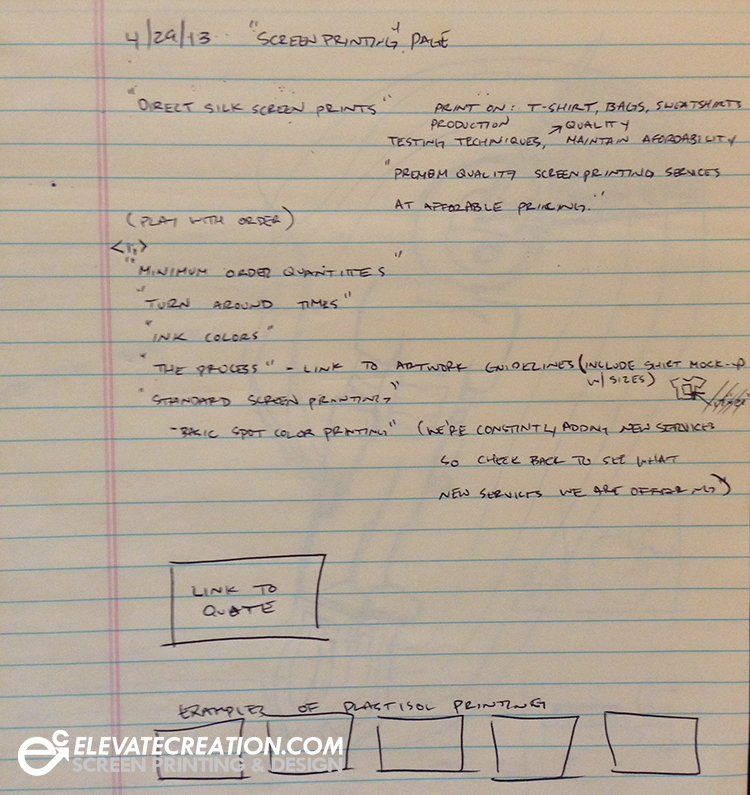 4/29/13 "SCREEN PRINTING" PAGE
"DIRECT SILK SCREEN PRINTS" PRINT ON: T-SHIRT, BAGS, SWEATSHIRTS
PRODUCTION → QUALITY
TESTING TECHNIQUES, MAINTAIN AFORDABILITY
"PREMEM QUALITY SCREEN PRINTING SERVICES
AT AFFORABLE PRICING."
(PLAY WITH ORDER)
"MINIMUM ORDER QUANTITES"
"TURN AROUND TIMES"
"INK COLORS"
"THE PROCESS" - LINK TO ARTWORK GUIDELINES (INCLUDE SHIRT MOCK-UP
W/ SIZES)
"STANDARD SCREEN PRINTING"
-BASIC SPOT COLOR PRINTING" (WE'RE CONSTINTLY ADDING NEW SERVICES
SO CHECK BACK TO SEE WHAT
NEW SERVICES WE ARE OFFERING)
LINK TO
QUATE
EXAMPLES OF PLASTISOL PRINTING
ELEVATECREATION.COM
SCREEN PRINTING & DESIGN